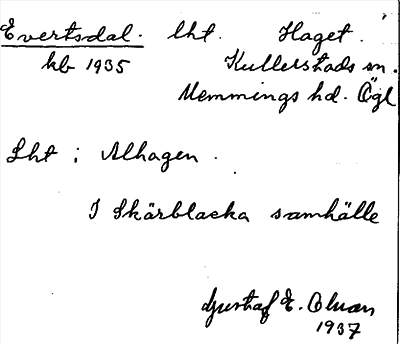 Evertsdal. lht. Haget.
kb 1935 Kullerstads sn.
Memmings hd. Ögl
Lht i Alhagen.
I Skärblacka samhälle
Gustaf E. Olson
1937